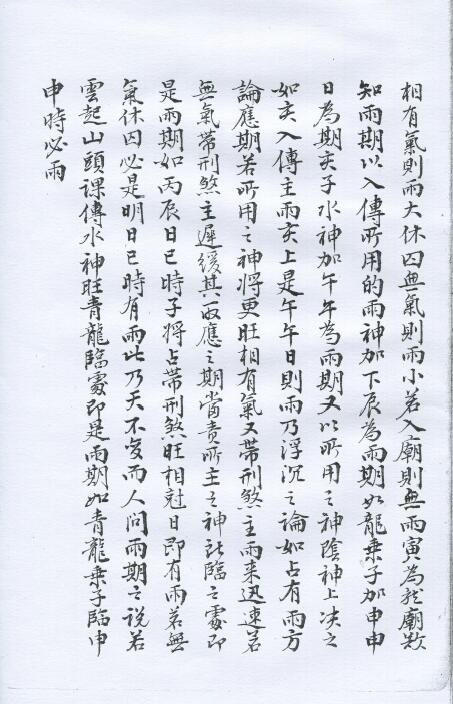 相有氣則雨大休囚無氣則雨小若入廟則無雨寅為龍廟欲
知雨期以入傳所用的雨神加下辰為雨期如龍乗子加申申
日為期亥子水神加午午為雨期又以所用之神陰神上决之
如亥入傳主雨亥上是午午日則雨乃浮沉之論如占有雨方
論應期若所用之神將更旺相有氣又帶刑煞主雨来迅速若
無氣帶刑煞主遲緩其取應之期當责所主之神所臨之處即
是雨期如丙辰日巳時子將占帶刑煞旺相尅日即有雨若無
氣休囚必是明日巳時有雨此乃天不变而人問雨期之説若
雲起山頭課傳水神旺青龍臨處即是雨期如青龍乗子臨申
申時必雨